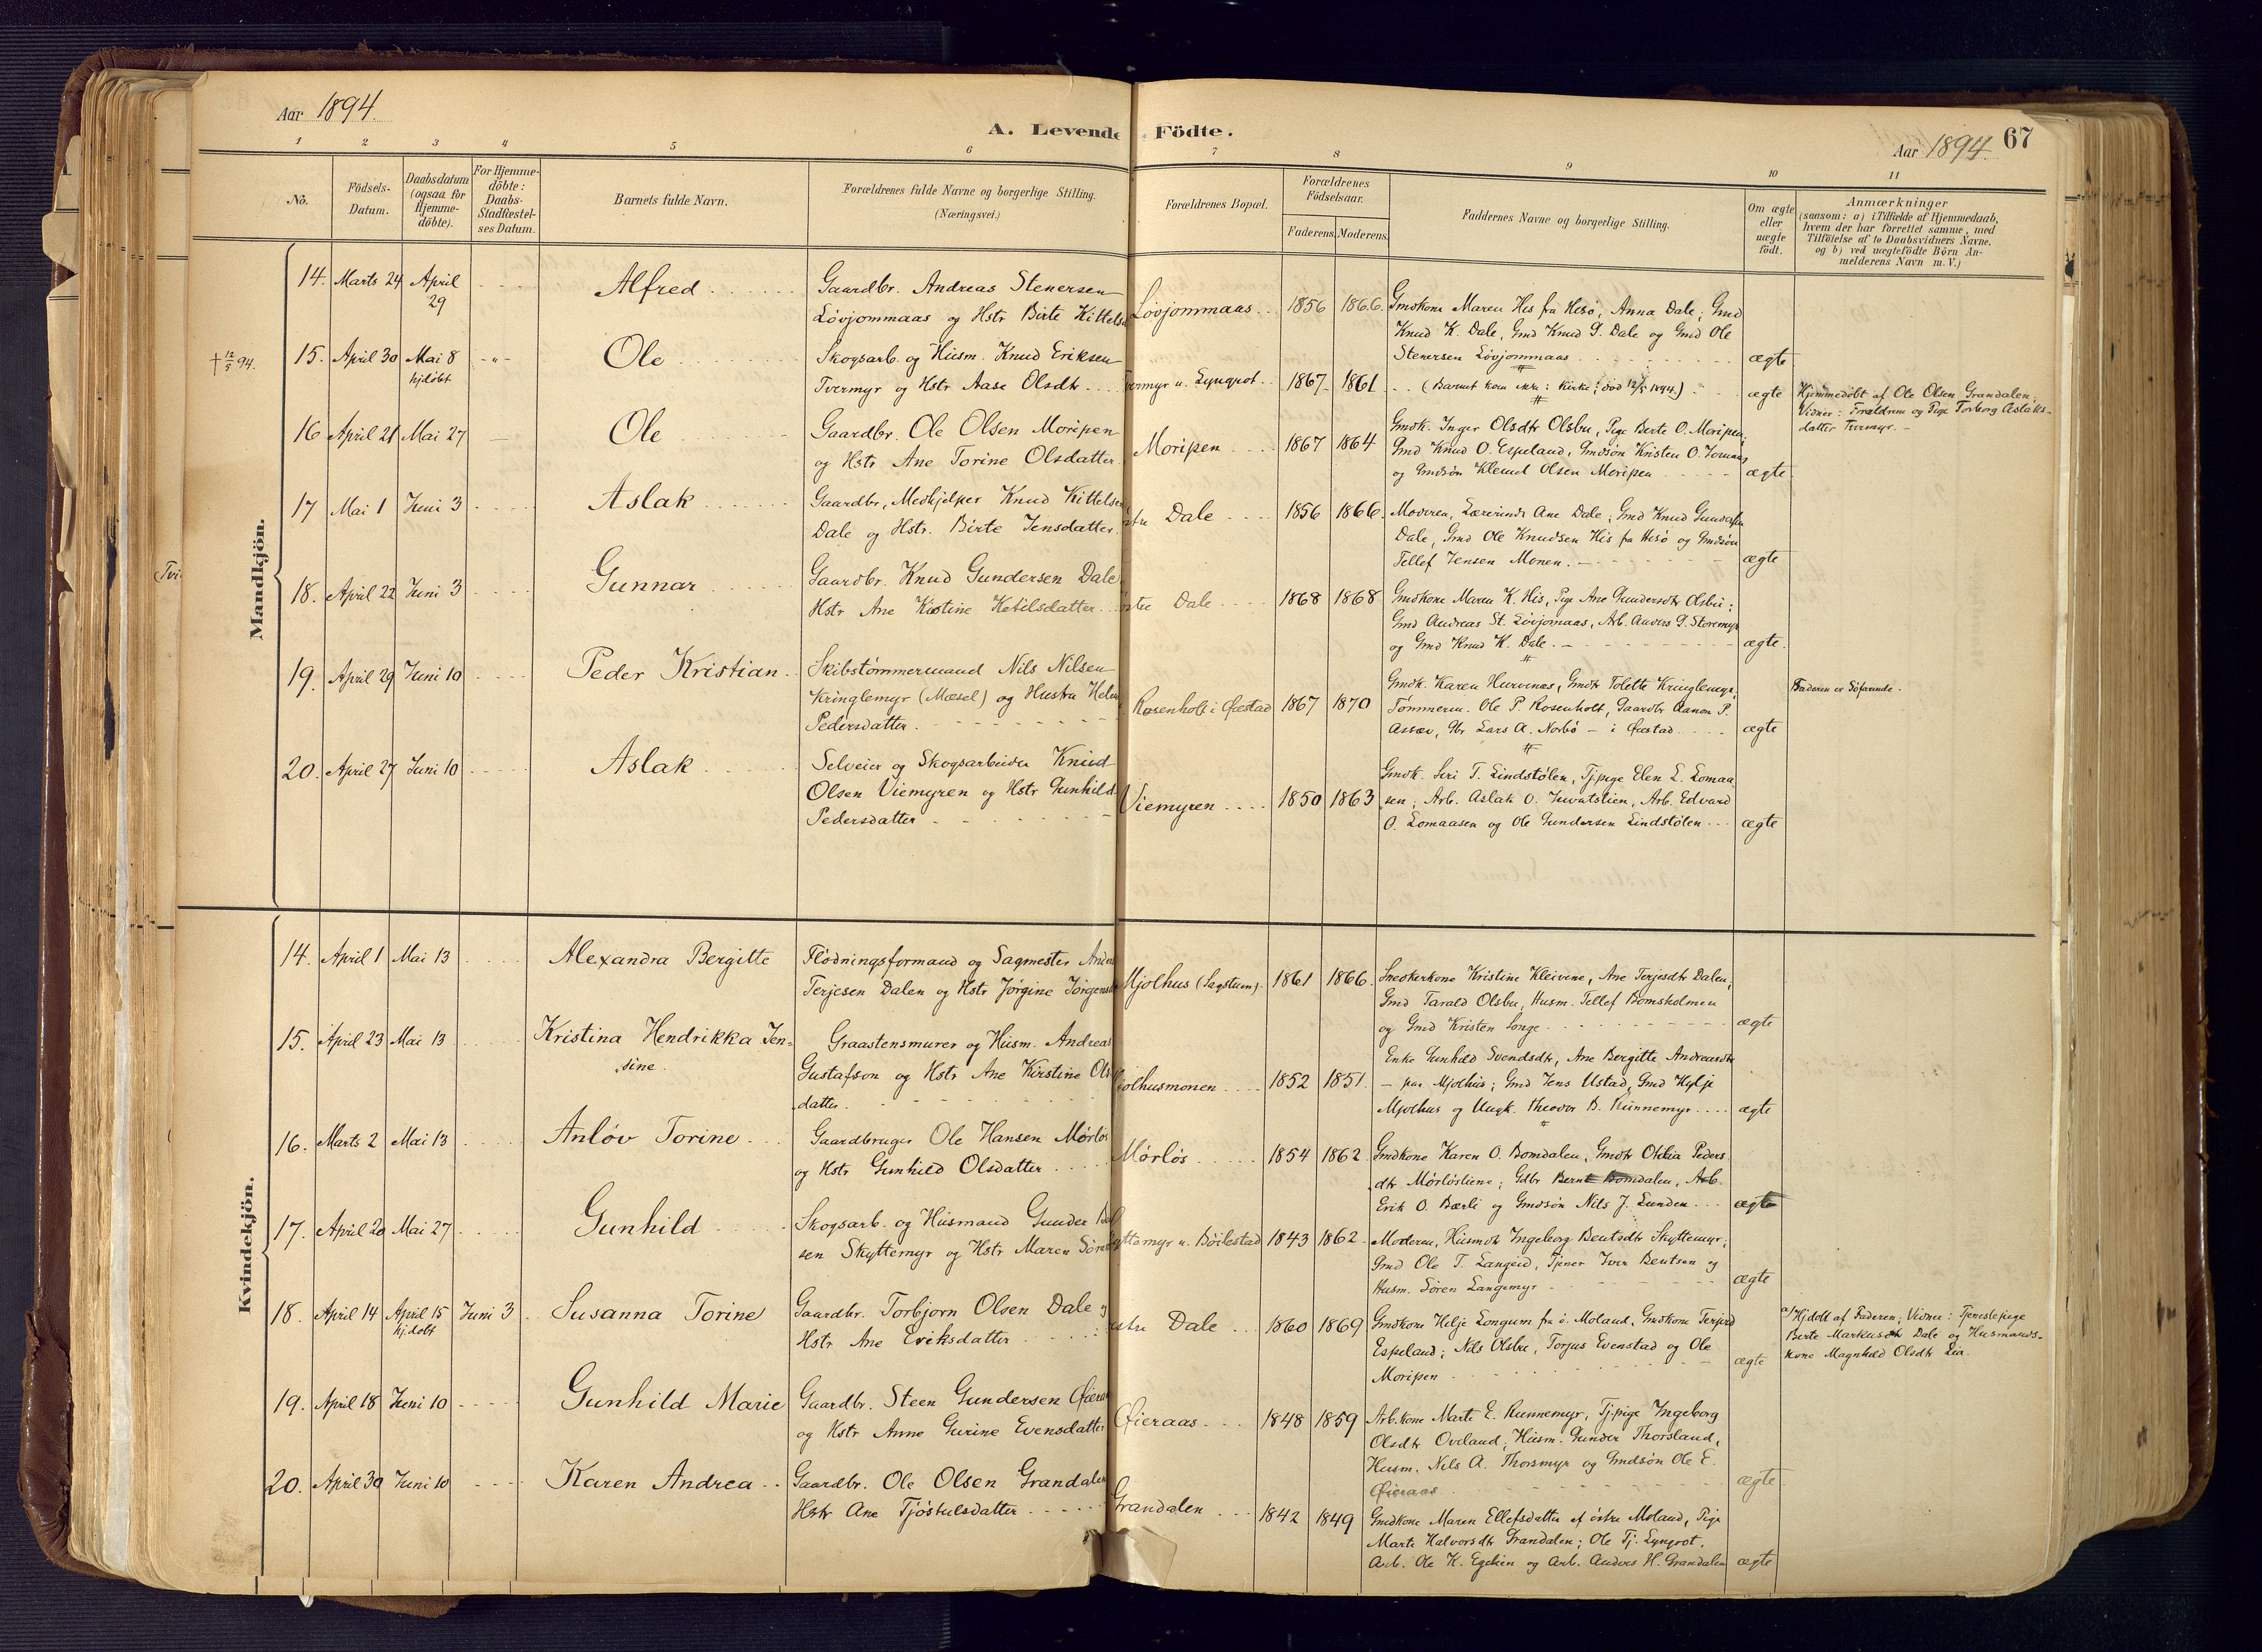 Aar 1894.
A. Levende Födte.
Aar 1894. 67
1 2 3 4 5 6 7 8 9 10 11
No.
Födsels-Datum.
Daabsdatum (ogsaa for Hjemme-döbte).
For Hjemme-döbte: Daabs-Stadfæstel-ses Datum.
Barnets fulde Navn.
Forældrenes fulde Navne og borgerlige Stilling. (Næringsvei.)
Forældrenes Bopæl.
Forældrenes Födselsaar.
Faderens. Moderens.
Faddernes Navne og borgerlige Stilling.
Om ægte eller uægte födt.
Anmærkninger
(saasom: a) i Tilfælde af Hjemmedaab,
hvem der har forrettet samme, med
Tilföielse af to Daabsvidners Navne.
og b) ved uægtefödte Börn An-
melderens Navn m. V.)
Mandkjön.
14. Marts 24 April 29 Alfred
Gaardbr. Andreas Stenersen
Lövjommaas og Hstr Birte Kittels
Lövjommaas 1856 1866.
Gmdkone Maren His fra Hisö, Anna Dale; Gmd
Knud K. Dale, Gmd Knud G. Dale og Gmd Ole
Stenersen Lövjommaas
ægte
† 12/5 94.
15. April 30 Mai 8 hjdöbt -"- Ole
Skogsarb. og Husm. Knud Eriksen
Tvermyr og Hstr Aase Olsdtr
Tvermyr u. Lyngrot 1867 1861
(Barnet kom ikke i Kirke; död 12/5 1894.)
ægte
Hjemmedöbt af Ole Olsen Grandalen;
Vidner: Forældrene og Pige Torborg Aslaks-
datter Tvermyr. -
16 April 21 Mai 27 Ole
Gaardbr. Ole Olsen Moripen
og Hstr Ane Torine Olsdatter
Moripen 1867 1864
Gmdk. Inger Olsdtr Olsbu, Pige Berte O. Moripen;
Gmd Knud O. Espeland, Gmdsön Kristen O. Jomaas
og Gmdsön Klemet Olsen Moripen
ægte
17 Mai 1 Juni 3 Aslak
Gaardbr., Medhjelper Knud Kittelsen
Dale og Hstr. Birte Jensdatter
Dale 1856 1866.
Moderen, Lærerinde Ane Dale; Gmd Knud Gundersen
Dale, Gmd Ole Knudsen His fra Hisö og Gmdsön
Tellef Jensen Monen.
ægte
18. April 22 Juni 3 Gunnar
Gaardbr. Knud Gundersen Dale
Hstr Ane Kirstine Ketilsdatter
Dale 1868 1868
Gmdkone Maren K. His, Pige Ane Gundersdtr Olsbu;
Gmd Andreas St. Lövjomaas, Arb. Anders G. Storemyr
og Gmd Knud K. Dale.
ægte.
19. April 29 Juni 10 Peder Kristian
Skibstömmermand Nils Nilsen
Kringlemyr (Mæsel) og Hustru Helene
Pedersdatter.
Rosenholt i Öiestad 1867 1870
Gmdk. Karen Hurvenes, Gmdtr Tolette Kringlemyr,
Tömmerm. Ole P. Rosenholt, Gaardbr Aanon P.
Assæv, Gbr Lars A. Norbö - i Öiestad
ægte
Faderen er Söfarende.
20. April 27 Juni 10 Aslak
Selveier og Skogsarbeider Knud
Olsen Viemyren og Hstr Gunhild
Pedersdatter
Viemyren 1850 1863
Gmdk. Siri T. Lindstölen, Tjpige Elen L. Lomaa
sen; Arb. Aslak O. Juvatstien, Arb. Edvard
O. Lomaasen og Ole Gundersen Lindstölen
ægte
Kvindekjön.
14. April 1 Mai 13 Alexandra Bergitte
Flödningsformand og Sagmester Anders
Terjesen Dalen og Hstr Jörgine Jörgens
Mjolhus (Sagstuen). 1861 1866.
Snedkerkone Kristine Kleivene, Ane Terjesdtr Dalen;
Gmd Tarald Olsbu, Husm. Tellef Bomsholmen
og Gmd Kristen Songe
ægte
15. April 23 Mai 13 Kristina Hendrikka Jen-
sine.
Graastensmurer og Husm. Andreas
Gustafson og Hstr Ane Kirstine Ols
datter.
Mjolhusmonen 1852 1851.
Enke Gunhild Svendsdtr, Ane Bergitte Andreasdtr
- paa Mjolhus; Gmd Jens Ustad, Gmd Hylje
Mjolhus og Ungk. Theodor B. Runnemyr
ægte
16. Marts 2 Mai 13 Anlöv Torine
Gaardbruger Ole Hansen Mörlös
og Hstr Gunhild Olsdatter
Mörlös 1854 1862.
Gmdkone Karen O. Bomdalen, Gmdtr Otelia Peders
dtr Mörlöstiene; Gdbr Bernt Bomdalen, Arb.
Erik O. Bærli og Gmdsön Nils J. Lunden
ægte
17. April 20 Mai 27 Gunhild
Skogsarb. og Husmand Gunder
sen Skyttemyr og Hstr Maren Sörens
Skyttemyr u. Böilestad 1843 1862.
Moderen, Husmdtr Ingeborg Bentsdtr Skyttemyr;
Gmd Ole T. Langeid, Tjener Iver Bentsen og
Husm. Sören Langemyr
ægte
18. April 14 April 15 hj.döbt Juni 3 Susanna Torine
Gaardbr. Torbjorn Olsen Dale og
Hstr Ane Eriksdatter
Dale 1860 1869
Gmdkone Helje Longum fra ö. Moland, Gmdkone Terjerd
Espeland; Nils Olsbu, Torjus Evenstad og Ole
Moripen
ægte
a) Hjdöbt af Faderen; Vidner: Tjenestepige
Berte Markusdtr Dale og Husmands-
kone Magnhild Olsdtr Lia
19. April 18 Juni 10 Gunhild Marie
Gaardbr. Steen Gundersen Öieraas
og Hstr Anne Gurine Evensdatter
Öieraas 1848 1859
Arb.kone Marte E. Runnemyr, Tjpige Ingeborg
Olsdtr Oveland; Husm. Gunder Thorsland,
Husm. Nils A. Thorsmyr og Gmdsön Ole E.
Öieraas
ægte
20. April 30 Juni 10 Karen Andrea
Gaardbr. Ole Olsen Grandalen
Hstr Ane Tjöstulsdatter
Grandalen 1842 1849
Gmdkone Maren Ellefsdatter af östre Moland, Pige
Marte Halvorsdtr Grandalen; Ole Tj. Lyngrot,
Arb. Ole K. Egelien og Arb. Anders H. Grandalen
ægte